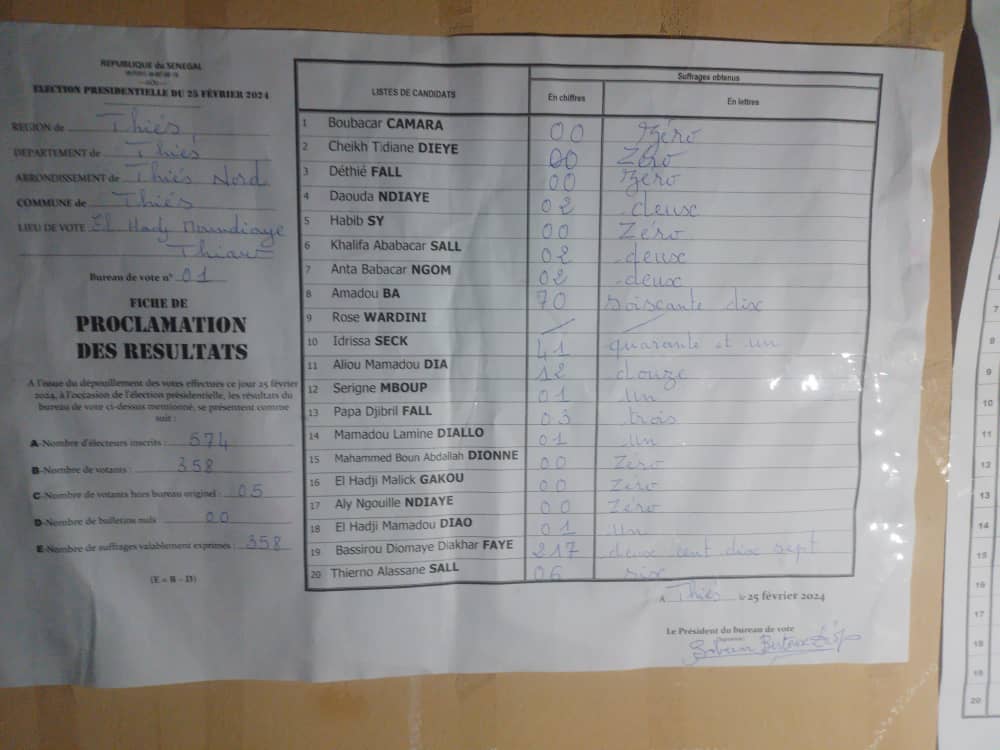 REPUBLIQUE du SENEGAL
ELECTION PRESIDENTIELLE DU 25 FÉVRIER 2024
REGION de Thiès
DEPARTEMENT de Thiès
ARRONDISSEMENT de Thiès Nord
COMMUNE de Thiès
LIEU DE VOTE El Hadj
Bureau de vote n° 01
FICHE DE
PROCLAMATION
DES RESULTATS
A l'issue du dépouillement des votes effectués ce jour 25 février
2024, à l'occasion de l'élection présidentielle, les résultats du
bureau de vote ci-dessus mentionné, se présentent comme
suit :
A-Nombre d'électeurs inscrits : 574
B-Nombre de votants : 358
C-Nombre de votants hors bureau originel : 05
D-Nombre de bulletins nuls 00
E-Nombre de suffrages valablement exprimés : 358
(E = B - D)
LISTES DE CANDIDATS Suffrages obtenus
En chiffres En lettres
1 Boubacar CAMARA 00 Zéro
2 Cheikh Tidiane DIEYE 00 Zéro
3 Déthié FALL 00 Zéro
4 Daouda NDIAYE 02 deux
5 Habib SY 00 Zéro
6 Khalifa Ababacar SALL 02 deux
7 Anta Babacar NGOM 02 deux
8 Amadou BA 70 soiscante dix
9 Rose WARDINI / /
10 Idrissa SECK 41 quarante et un
11 Aliou Mamadou DIA 12 douze
12 Serigne MBOUP 01 un
13 Papa Djibril FALL 03 trois
14 Mamadou Lamine DIALLO 01 un
15 Mahammed Boun Abdallah DIONNE 00 Zéro
16 El Hadji Malick GAKOU 00 Zéro
17 Aly Ngouille NDIAYE 00 Zéro
18 El Hadji Mamadou DIAO 01 un
19 Bassirou Diomaye Diakhar FAYE 217 deux cent dix sept
20 Thierno Alassane SALL 06 six
A Thiès le 25 février 2024
Le Président du bureau de vote
7
8
9
10
11
12
13
14
15
16
17
18
19
20